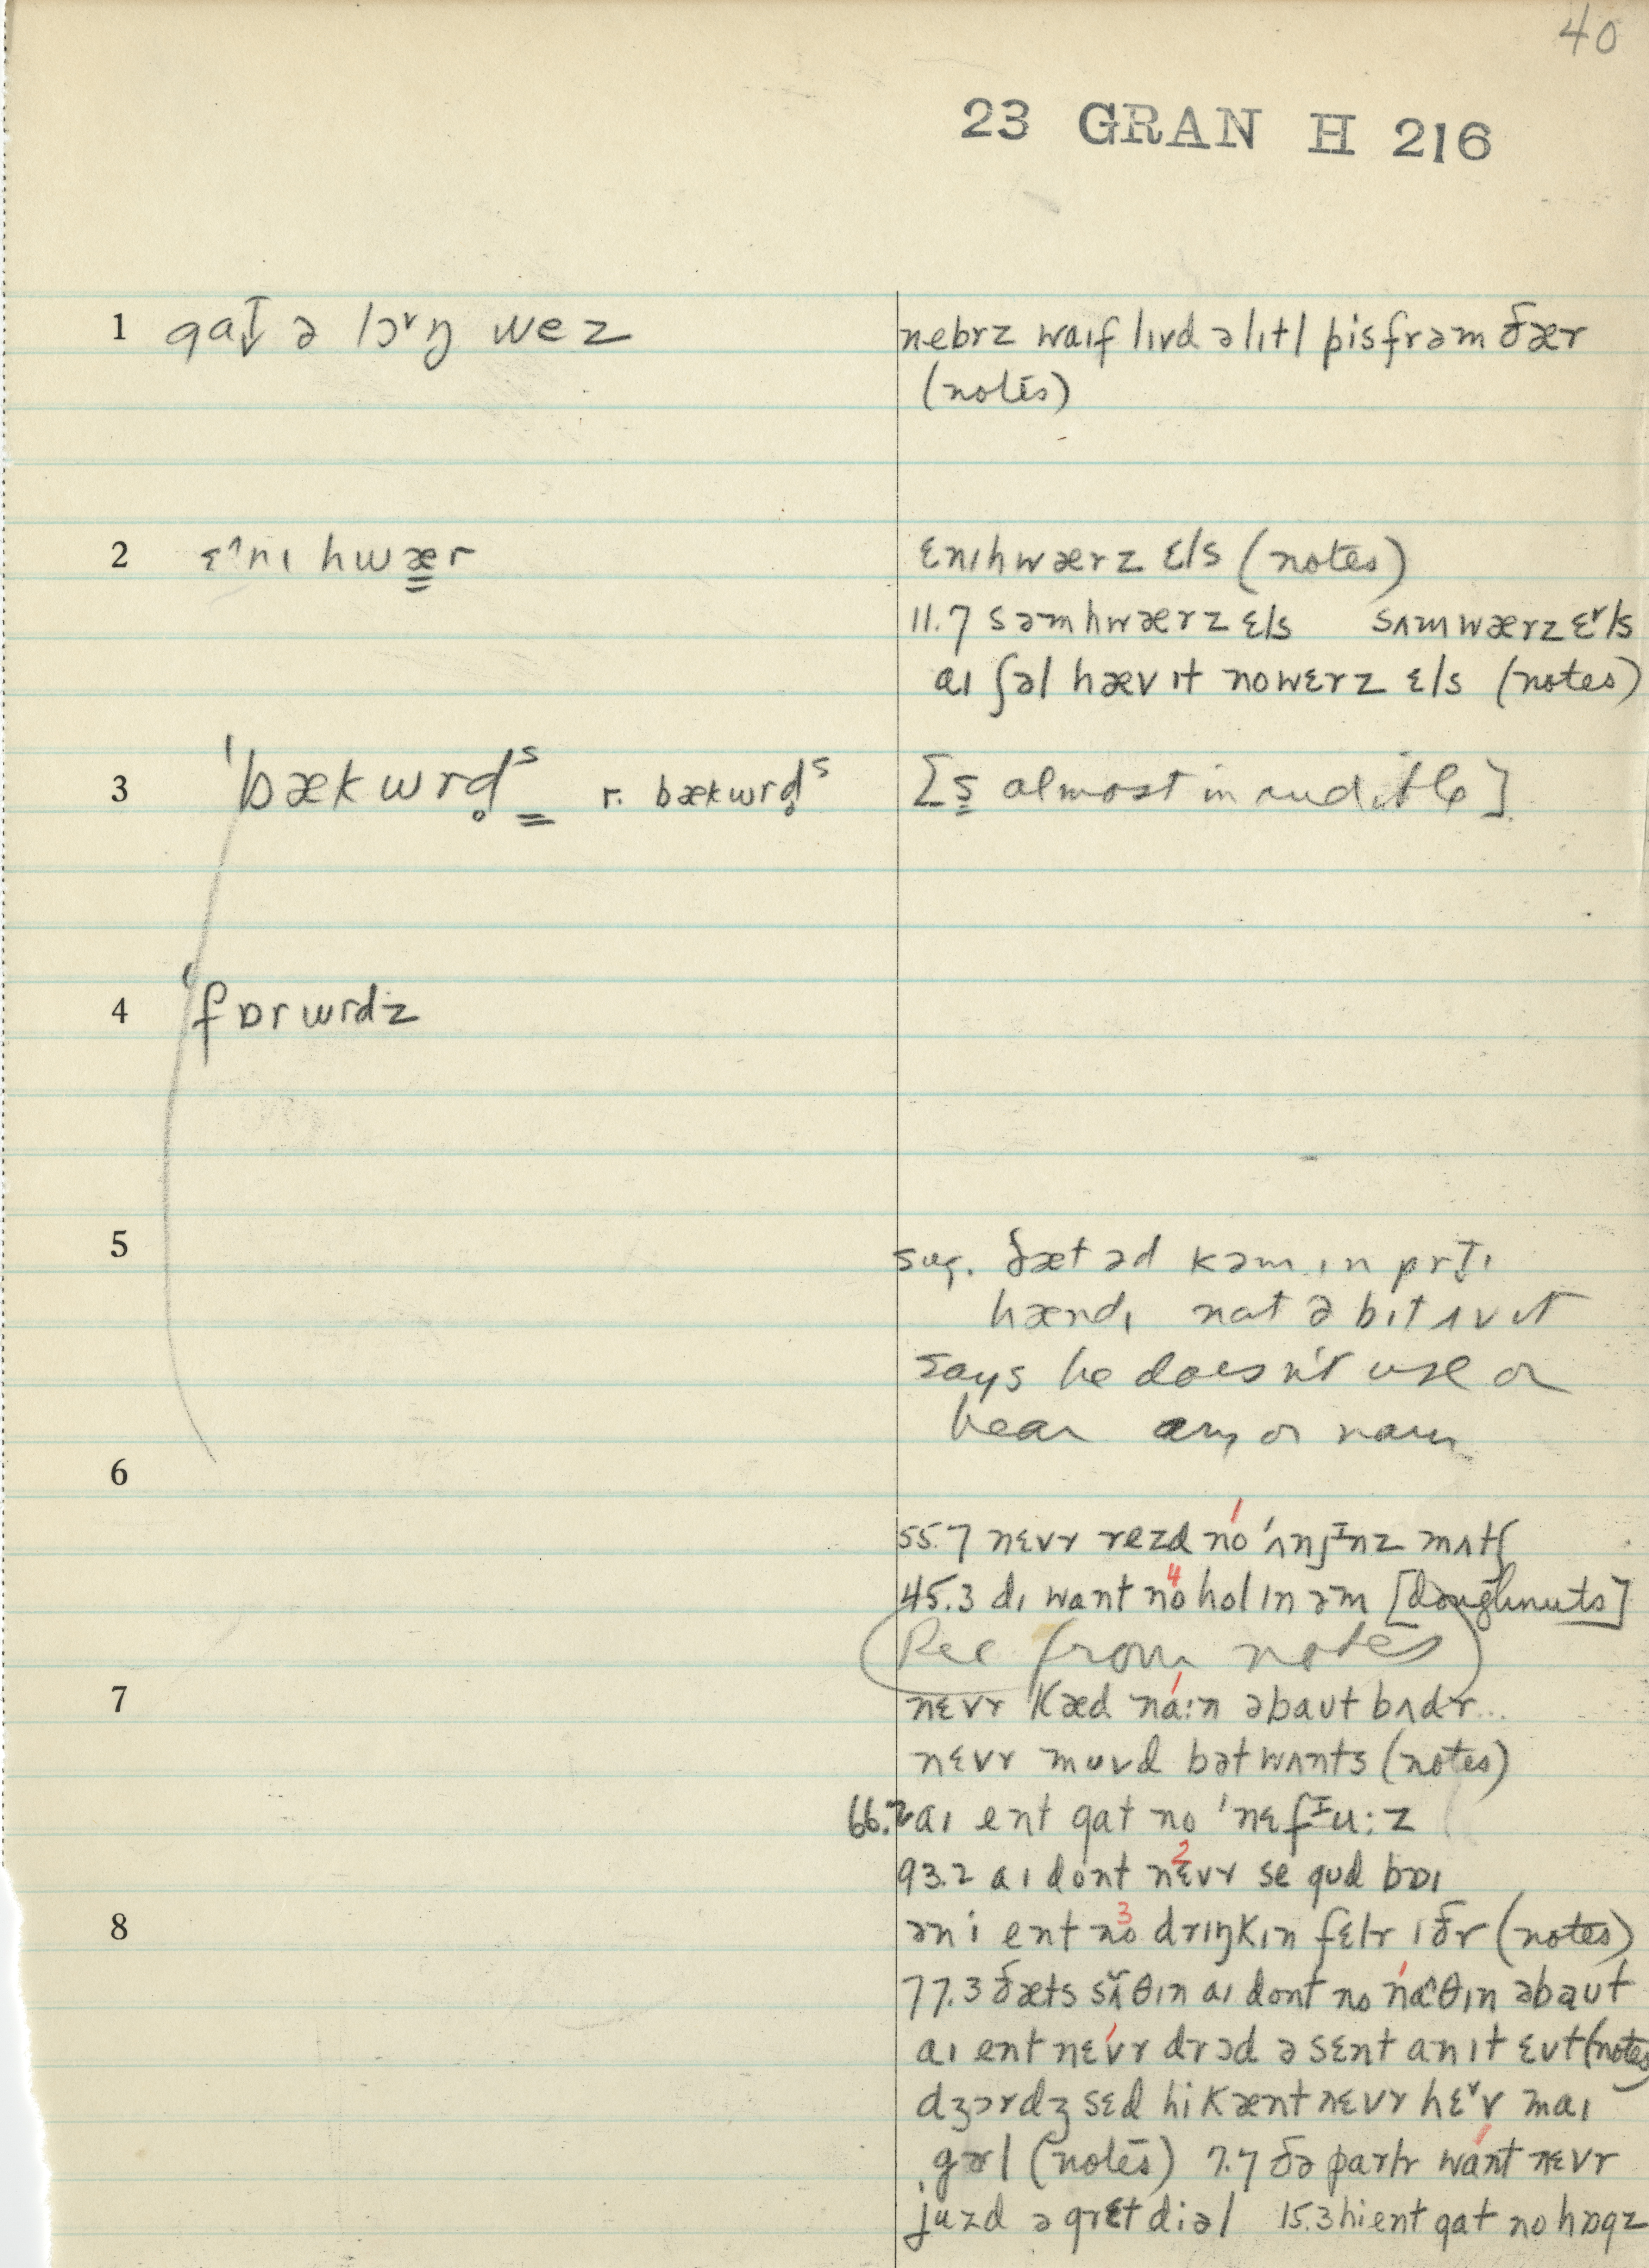 40
23 GRAN H 216
1 gat̬ ə lɔ˅ŋ wez
nebrz waɪf lɪvd ə lɪtl pis frəm ðær
(notes)
2 ɛ^nɪ hwær
ɛnɪhwærz ɛls (notes)
11.7 səmhwærz ɛls sʌmwærz ɛ˅ls
aɪ ʃəl hæv ɪt nowɛrz ɛls (notes)
3 ˈbækwrd̥ˢ r. bækwrd̥ˢ
[s almost inaudible]
4 ˈfɒrwrdz
5
sug. ðæt əd kəm ɪn prt̬ɪ
hændɪ nat ə bɪt ʌv ɪt
says he doesn't use or
hear ary or nary
6
55.7 nɛvr rezd no ˈʌnjᵻnz mʌtʃ
45.3 dɪ want no hol ɪn əm [doughnuts]
(Rec from notes)
7
nɛvr kæd na:n əbaut bʌdr...
nɛvr muvd bət wʌnts (notes)
66.2 aɪ ent gat no ˈnɛfᵻu:z
93.2 aɪ dont nɛvr se gud bɒɪ
8
ən i ent no drɪŋkɪn fɛlr ɪðr (notes)
77.3 ðæts sʌ̃θɪn aɪ dont no na^θɪn əbaut
aɪ ent nɛvr drɔd ə sɛnt an ɪt ɛvt (notes)
dʒɔrdʒ sɛd hi kænt nɛvr hɛ˅v maɪ
gərl (notes) 7.7 ðə parlr want nɛvr
juzd ə gret diəl 15.3 hi ent gat no hɒgz